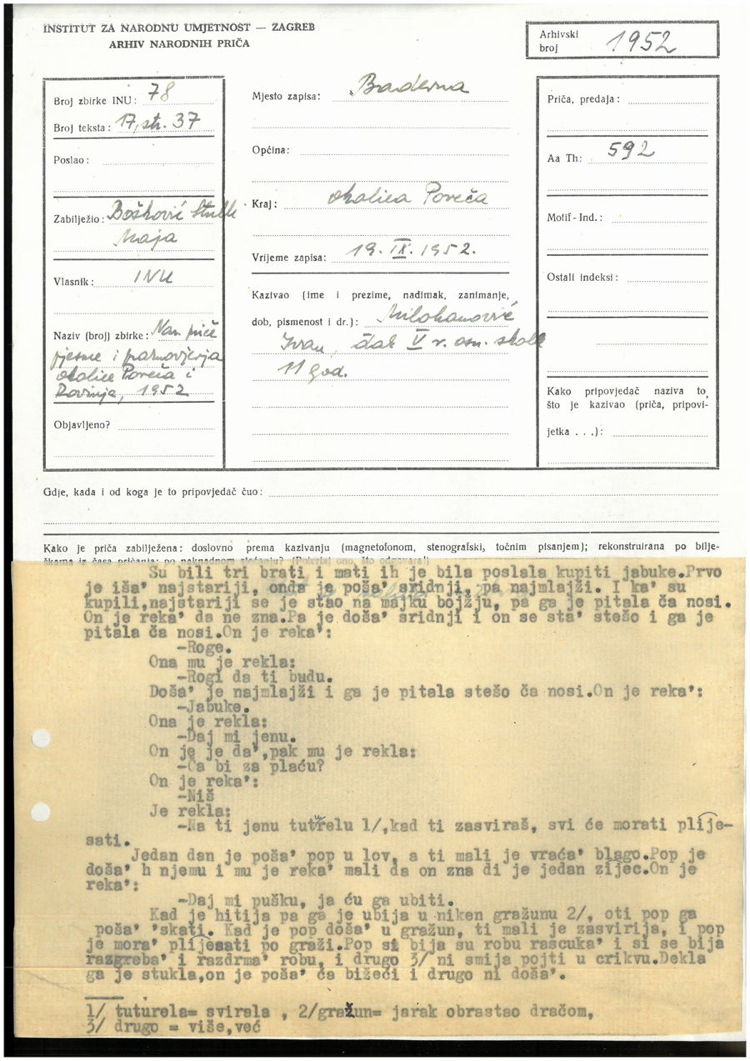 INSTITUT ZA NARODNU UMJETNOST — ZAGREB
ARHIV NARODNIH PRIČA
Arhivski
broj 1952
Broj zbirke INU: 78
Broj teksta: 17, str. 37
Poslao:
Zabilježio: Bošković Stulli
Maja
Vlasnik: INU
Naziv (broj) zbirke: Nar. priče
pjesme i praznovjerja
okolice Poreča i
Rovinja, 1952
Objavljeno?
Mjesto zapisa: Baderna
Općina:
Kraj: okolica Poreča
Vrijeme zapisa: 19. IX. 1952.
Kazivao (ime i prezime, nadimak, zanimanje,
dob, pismenost i dr.): Milohanović
Ivan, đak V r. osn. škole
11 god.
Priča, predaja:
Aa Th: 592
Motif-Ind.:
Ostali indeksi:
Kako pripovjedač naziva to
što je kazivao (priča, pripovi-
jetka . . .):
Gdje, kada i od koga je to pripovjedač čuo:
Kako je priča zabilježena: doslovno prema kazivanju (magnetofonom, stenografski, točnim pisanjem); rekonstruirana po bilje-
Su bili tri brati i mati ih je bila poslala kupiti jabuke.Prvo
je iša' najstariji, onda je poša' sridnji, pa najmlajži. I ka' su
kupili,najstariji se je stao na majku bojžju, pa ga je pitala ča nosi.
On je reka' da ne zna.Pa je doša' sridnji i on se sta' stešo i ga je
pitala ča nosi.On je reka':
—Roge.
Ona mu je rekla:
—Rogi da ti budu.
Doša' je najmlajži i ga je pitala stešo ča nosi.On je reka':
—Jabuke.
Ona je rekla:
—Daj mi jenu.
On je je da',pak mu je rekla:
—Ča bi za plaću?
On je reka':
—Niš
Je rekla:
—Na ti jenu tuturelu 1/,kad ti zasviraš, svi će morati plije-
sati.
Jedan dan je poša' pop u lov, a ti mali je vraća' blago.Pop je
doša' h njemu i mu je reka' mali da on zna di je jedan zijec.On je
reka':
—Daj mi pušku, ja ću ga ubiti.
Kad je hitija pa ga je ubija u niken gražunu 2/, oti pop ga
poša' 'skati. Kad je pop doša' u gražun, ti mali je zasvirija, i pop
je mora' plijesati po graži.Pop si bija su robu rascuka' i si se bija
razgreba' i razdrma' robu, i drugo 3/ ni smija pojti u crikvu.Dekla
ga je stukla,on je poša' ča bižeći i drugo ni doša'.
1/ tuturela= svirala , 2/gražun= jarak obrastao dračom,
3/ drugo = više,već